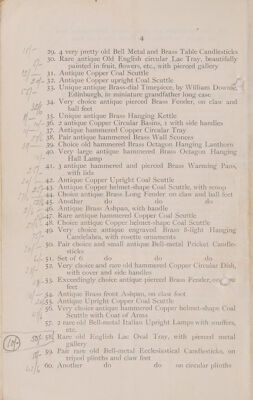 4
29. 4 very pretty old Bell Metal and Brass Table Candlesticks
30. Rare antique Old English circular Lac Tray, beautifully
painted in fruit, flowers, etc., with pierced gallery
31. Antique Copper Coal Scuttle
32. Antique Copper upright Coal Scuttle
33. Unique antique Brass-dial Timepiece, by William Downie,
Edinburgh, in miniature grandfather long case
34. Very choice antique pierced Brass Fender, on claw and
ball feet
35. Unique antique Brass Hanging Kettle
36. 2 antique Copper Circular Basins, 1 with side handles
37. Antique hammered Copper Circular Tray
38. Pair antique hammered Brass Wall Sconces
39. Choice old hammered Brass Octagon Hanging Lanthorn
40. Very large antique hammered Brass Octagon Hanging
Hall Lamp
41. 3 antique hammered and pierced Brass Warming Pans,
with lids
42. Antique Copper Upright Coal Scuttle
43. Antique Copper helmet-shape Coal Scuttle, with scoop
44. Choice antique Brass Long Fender on claw and ball feet
45. Another do do do
46. Antique Brass Ashpan, with handle
47. Rare antique hammered Copper Coal Scuttle
48. Choice antique Copper helmet-shape Coal Scuttle
49. Very choice antique engraved Brass 8-light Hanging
Candelabra, with rosette ornaments
50. Pair choice and small antique Bell-metal Pricket Candle-
sticks
51. Set of 6 do do do
52. Very choice and rare old hammered Copper Circular Dish,
with cover and side handles
53. Exceedingly choice antique pierced Brass Fender, on
feet
54. Antique Brass front Ashpan, on claw feet
55. Antique Upright Copper Coal Scuttle
56. Very choice antique hammered Copper helmet-shape Coal
Scuttle with Coat of Arms
57. 2 rare old Bell-metal Italian Upright Lamps with snuffers,
etc.
58. Rare old English Lac Oval Tray, with pierced metal
gallery
59. Pair rare old Bell-metal Ecclesiastical Candlesticks, on
tripod plinths and claw feet
60. Another do do on circular plinths